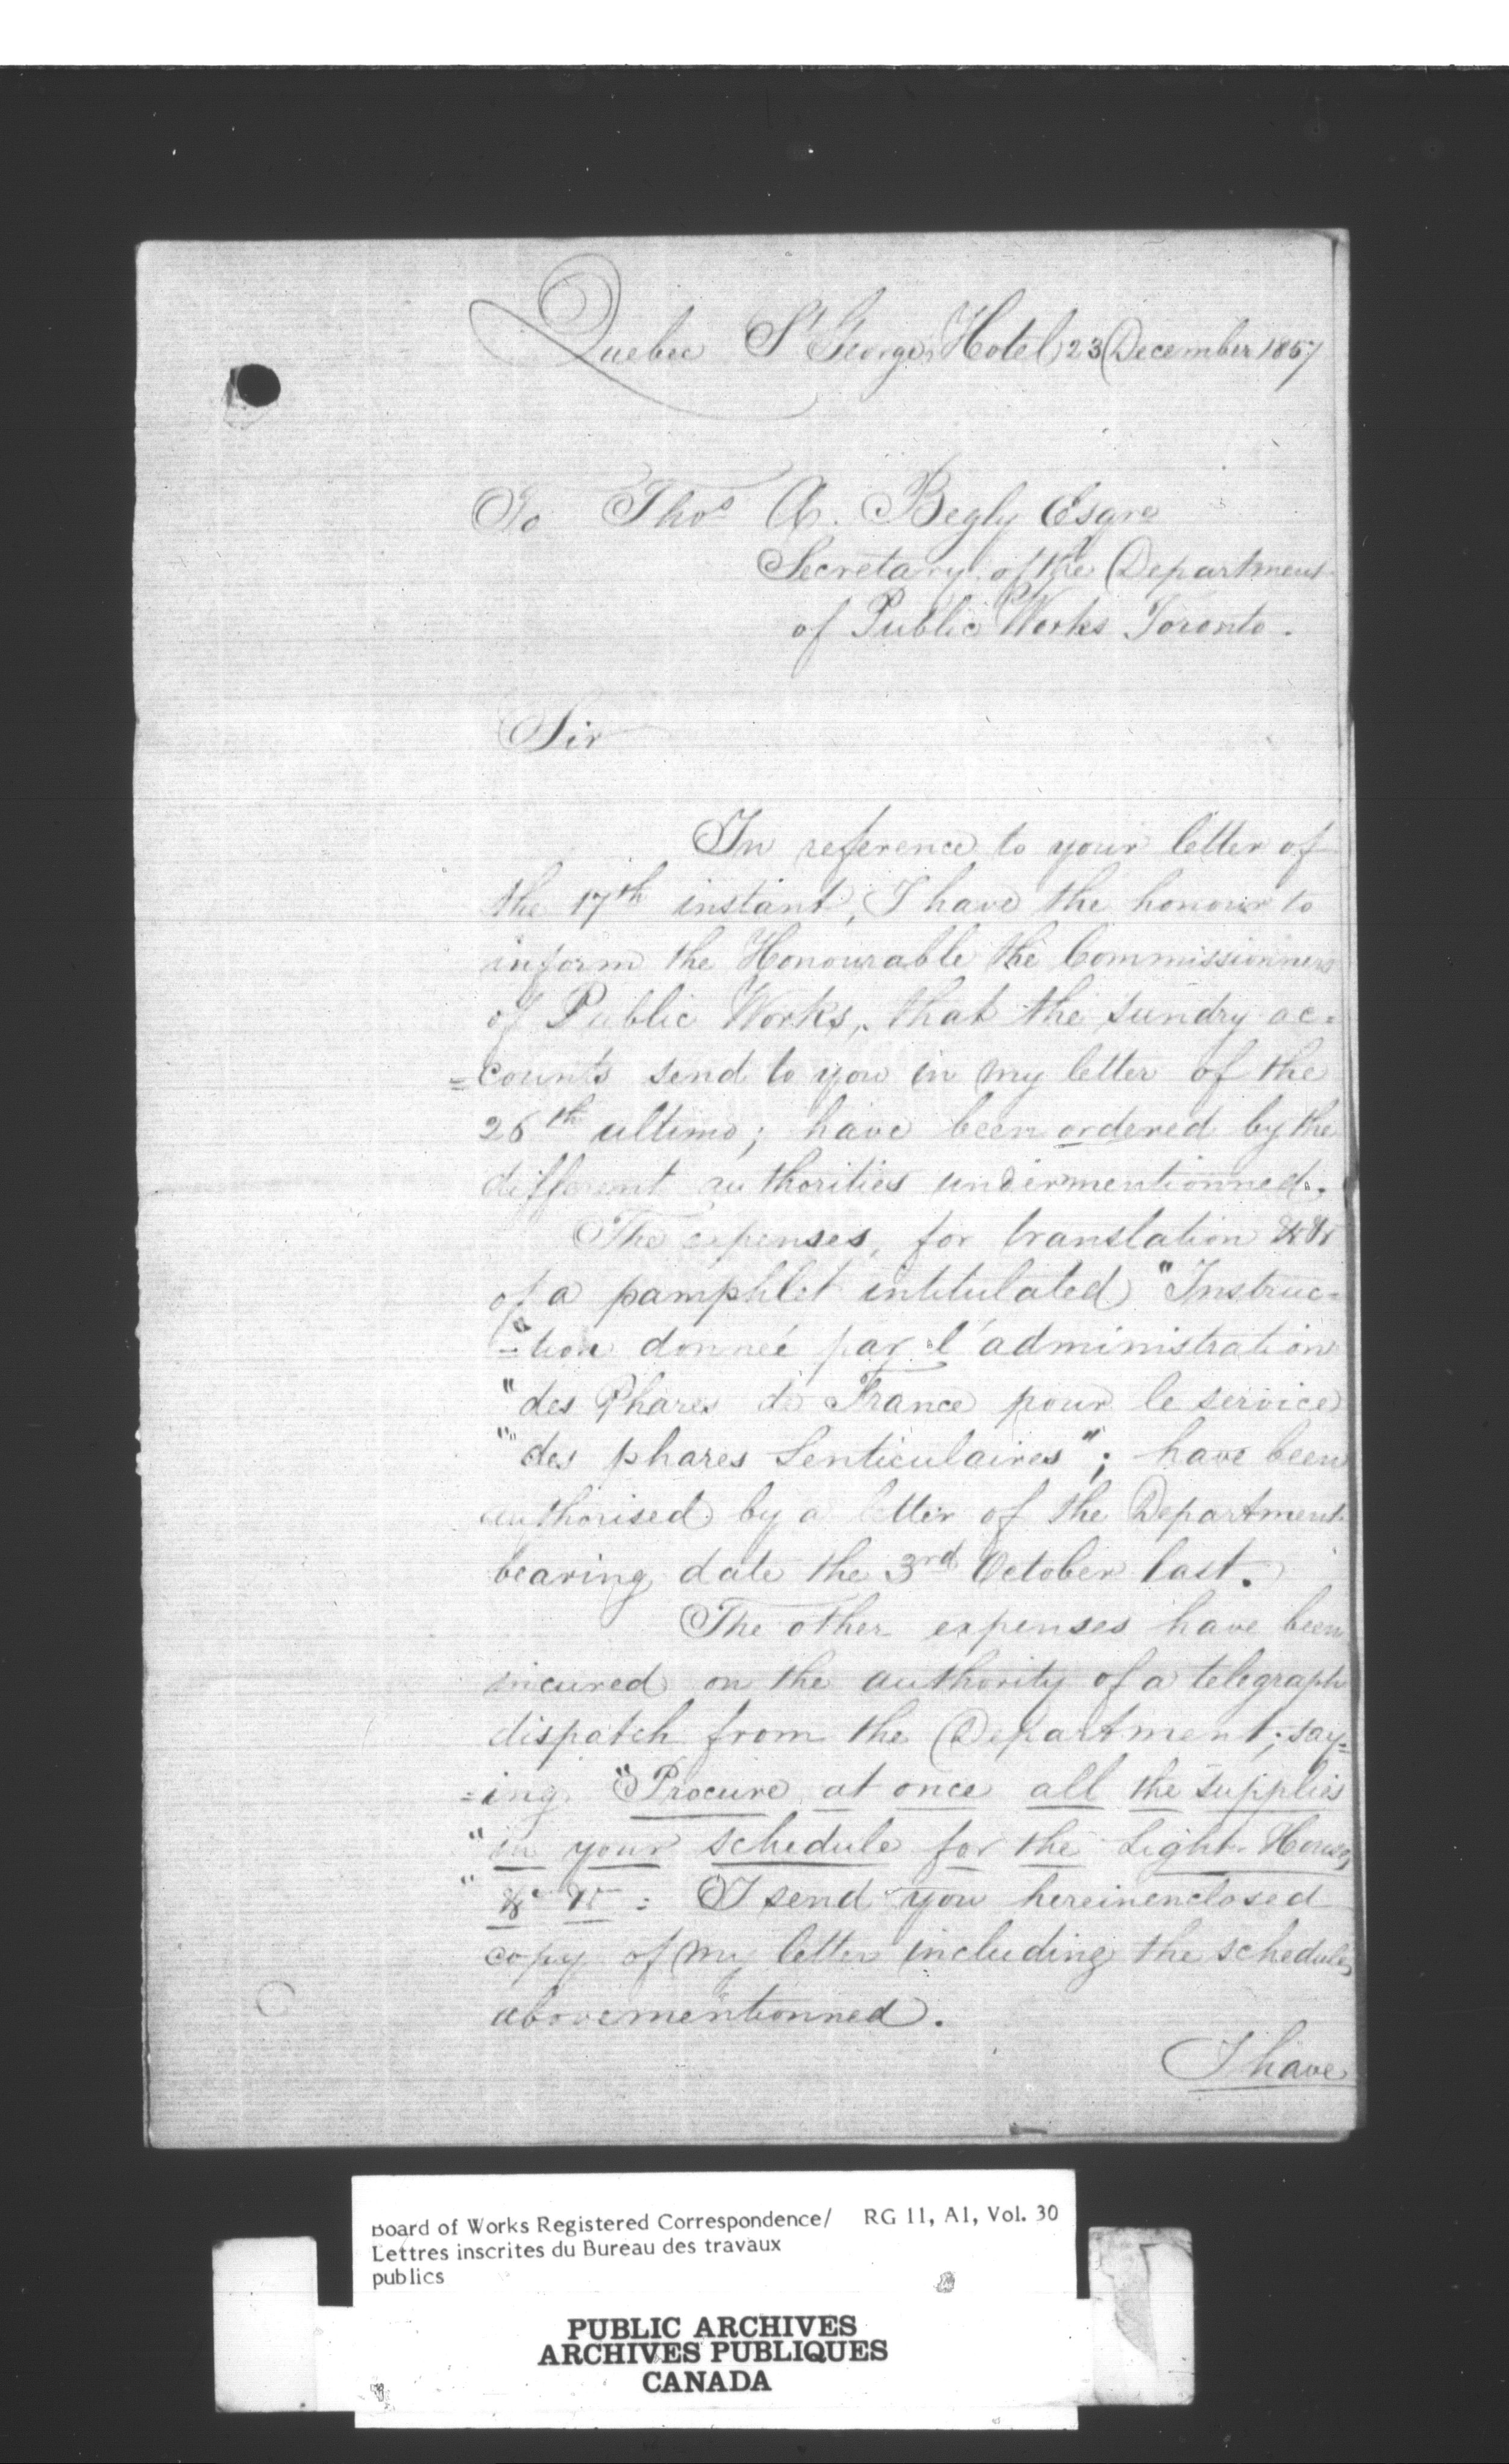 Quebec St Georges Hotel 23 December 1857
To Thos A. Begly Esqre
Secretary of the Department
of Public Works Toronto.
Sir
In reference to your letter of
the 17th instant, I have the honour to
inform the Honourable the Commissionners
of Public Works, that the sundry ac=
=counts send to you in my letter of the
26th ultimo; have been ordered by the
different authorities undermentionned.
The expenses, for translation &c &c
of a pamphlet intitulated "Instruc=
"=tion donneé par l'administration
"des Phares de France pour le service
"des phares Lenticulaires"; have been
authorised by a letter of the Department
bearing date the 3rd October last.
The other expenses have been
incured on the authority of a telegraph
dispatch from the Department; say=
=ing "Procure at once all the supplies
"in your schedule for the Light-House,
"&c &c: I send you hereinenclosed
copy of my letter including the schedule,
abovementionned.
I have
Board of Works Registered Correspondence/ RG 11, A1, Vol. 30
Lettres inscrites du Bureau des travaux
publics
PUBLIC ARCHIVES
ARCHIVES PUBLIQUES
CANADA